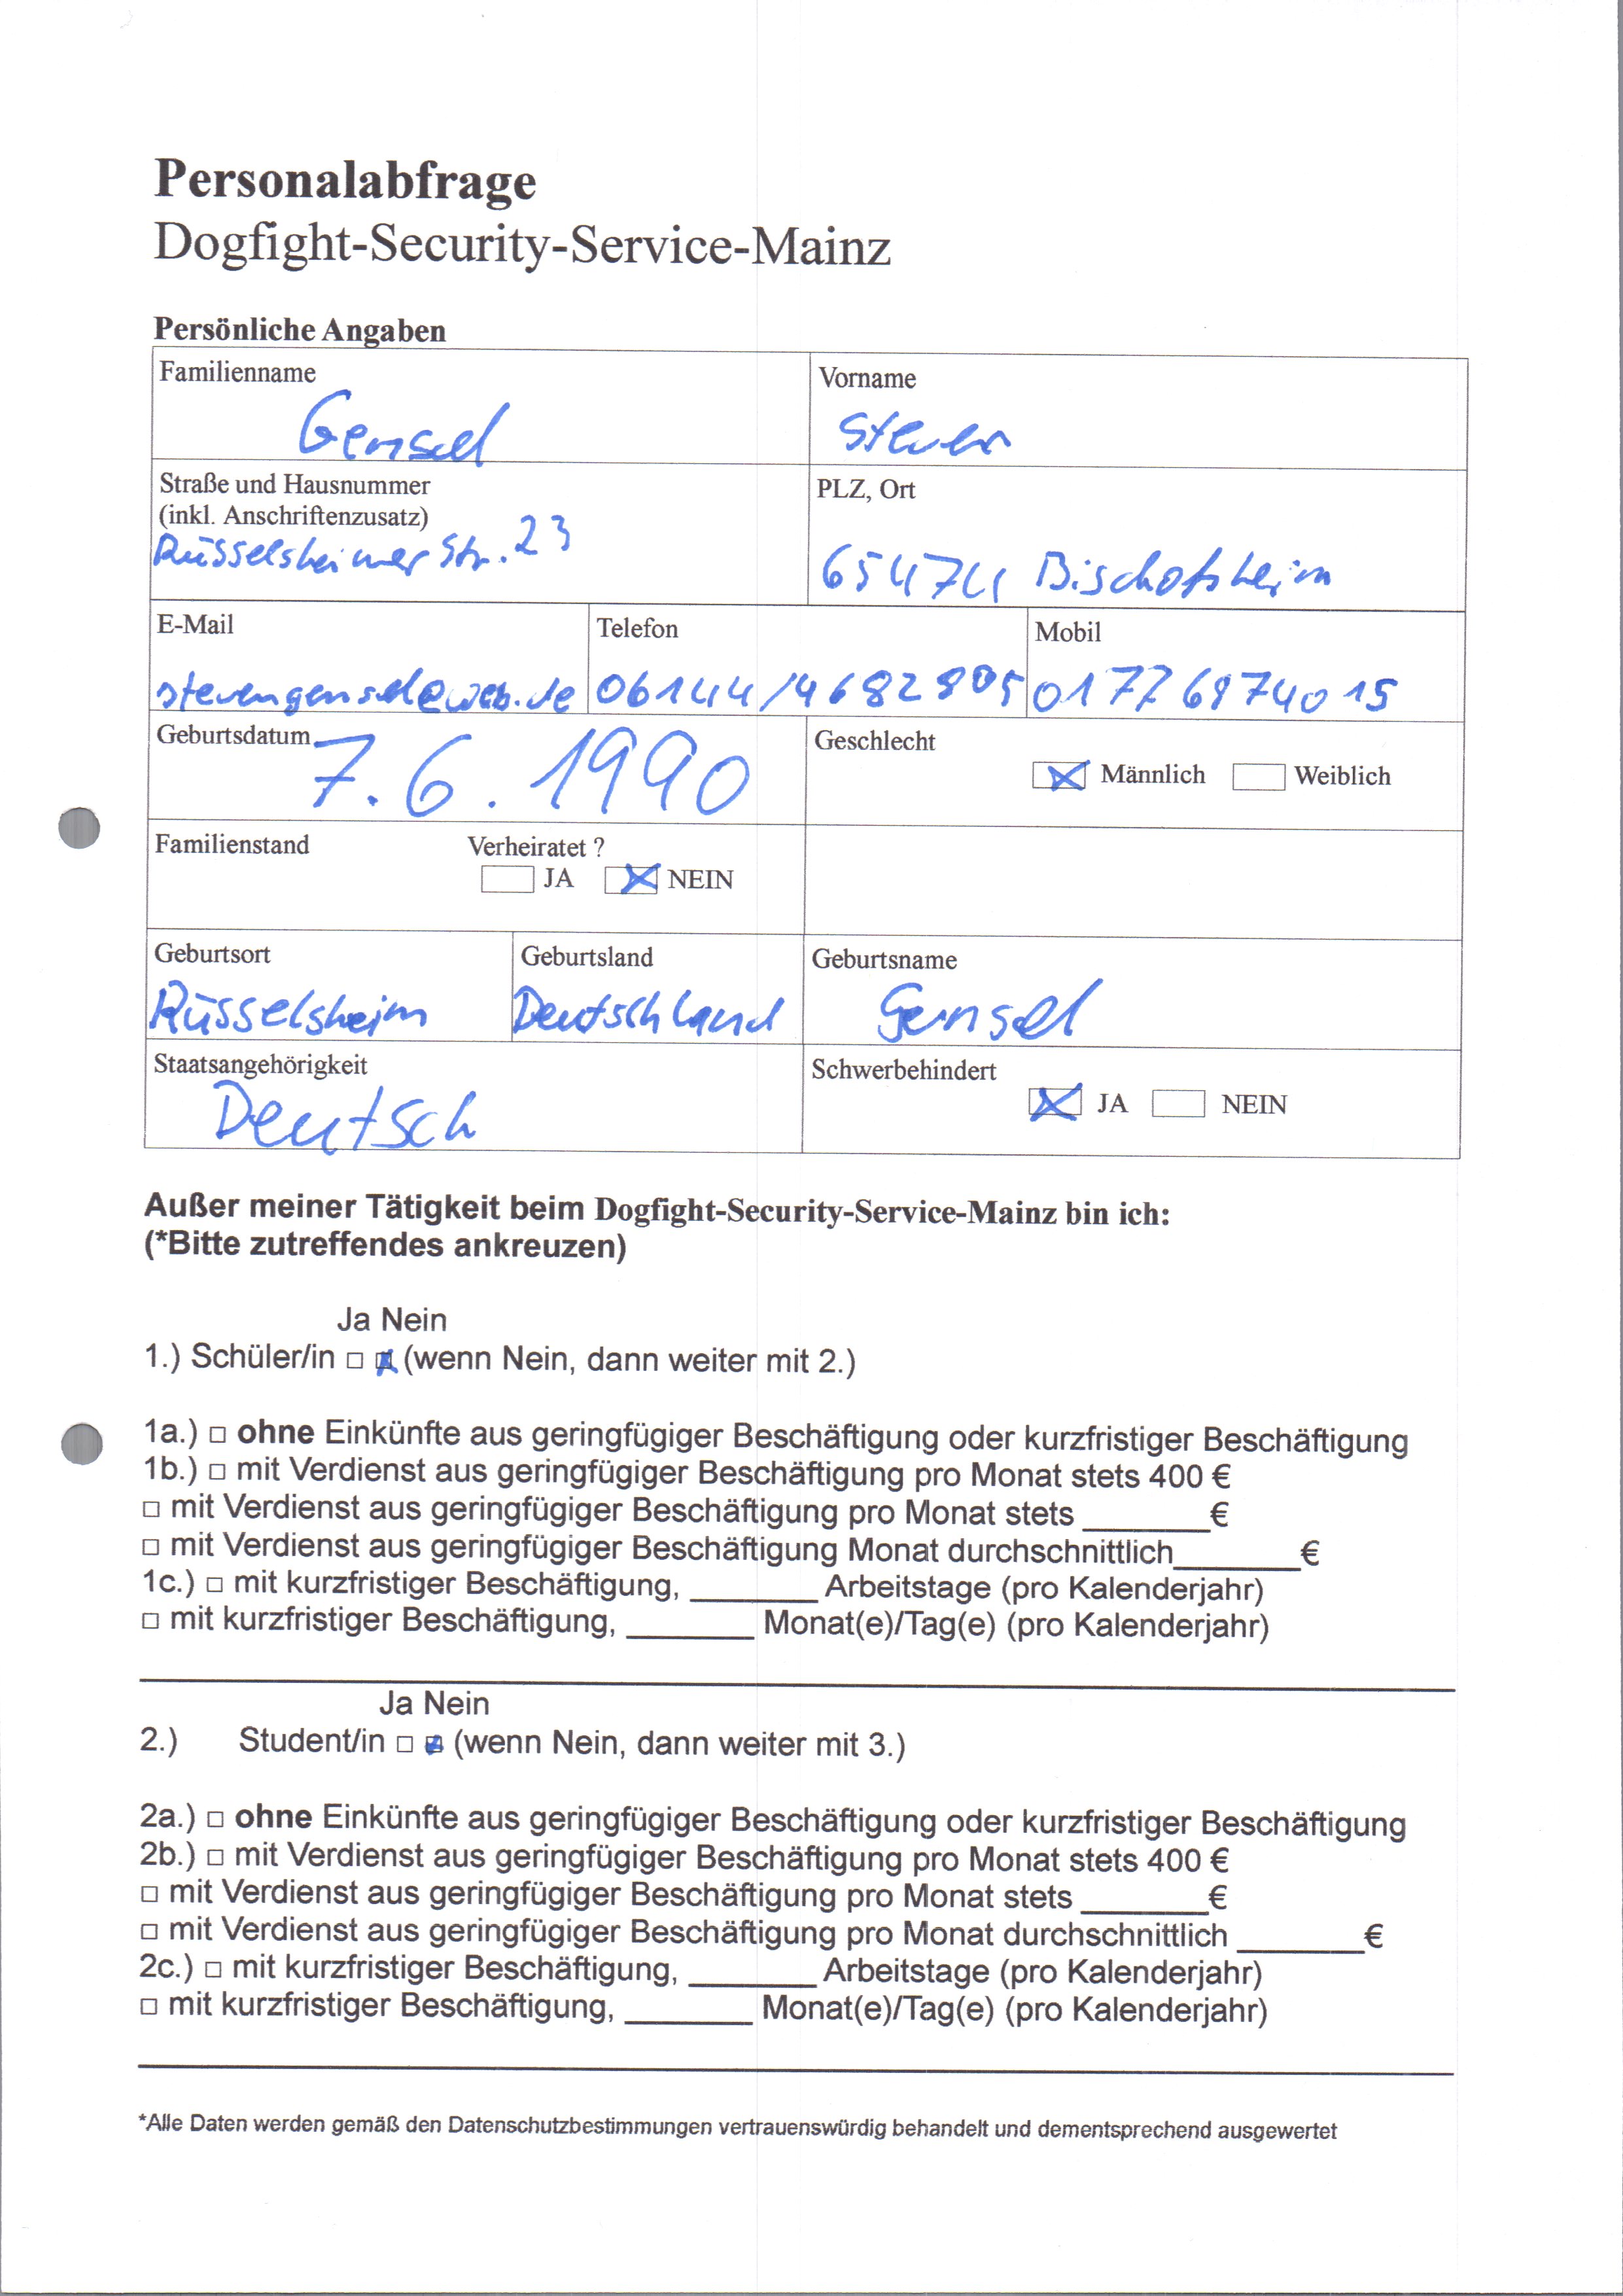 Personalabfrage
Dogfight-Security-Service-Mainz
Persönliche Angaben
Familienname
Gensel
Vorname
Steven
Straße und Hausnummer
(inkl. Anschriftenzusatz)
Rüsselsheimer Str. 23
PLZ, Ort
65474 Bischofsheim
E-Mail
stevengensel@web.de
Telefon
06144/4682805
Mobil
Geburtsdatum
7.6.1990
Geschlecht
Männlich Weiblich
Familienstand Verheiratet ?
JA NEIN
Geburtsort
Rüsselsheim
Geburtsland
Deutschland
Geburtsname
Gensel
Staatsangehörigkeit
Deutsch
Schwerbehindert
JA NEIN
Außer meiner Tätigkeit beim Dogfight-Security-Service-Mainz bin ich:
(*Bitte zutreffendes ankreuzen)
Ja Nein
1.) Schüler/in □ □ (wenn Nein, dann weiter mit 2.)
1a.) □ ohne Einkünfte aus geringfügiger Beschäftigung oder kurzfristiger Beschäftigung
1b.) □ mit Verdienst aus geringfügiger Beschäftigung pro Monat stets 400 €
□ mit Verdienst aus geringfügiger Beschäftigung pro Monat stets _______€
□ mit Verdienst aus geringfügiger Beschäftigung Monat durchschnittlich_______€
1c.) □ mit kurzfristiger Beschäftigung, _______ Arbeitstage (pro Kalenderjahr)
□ mit kurzfristiger Beschäftigung, _______ Monat(e)/Tag(e) (pro Kalenderjahr)
Ja Nein
2.) Student/in □ □ (wenn Nein, dann weiter mit 3.)
2a.) □ ohne Einkünfte aus geringfügiger Beschäftigung oder kurzfristiger Beschäftigung
2b.) □ mit Verdienst aus geringfügiger Beschäftigung pro Monat stets 400 €
□ mit Verdienst aus geringfügiger Beschäftigung pro Monat stets _______€
□ mit Verdienst aus geringfügiger Beschäftigung pro Monat durchschnittlich _______€
2c.) □ mit kurzfristiger Beschäftigung, _______ Arbeitstage (pro Kalenderjahr)
□ mit kurzfristiger Beschäftigung, _______ Monat(e)/Tag(e) (pro Kalenderjahr)
*Alle Daten werden gemäß den Datenschutzbestimmungen vertrauenswürdig behandelt und dementsprechend ausgewertet